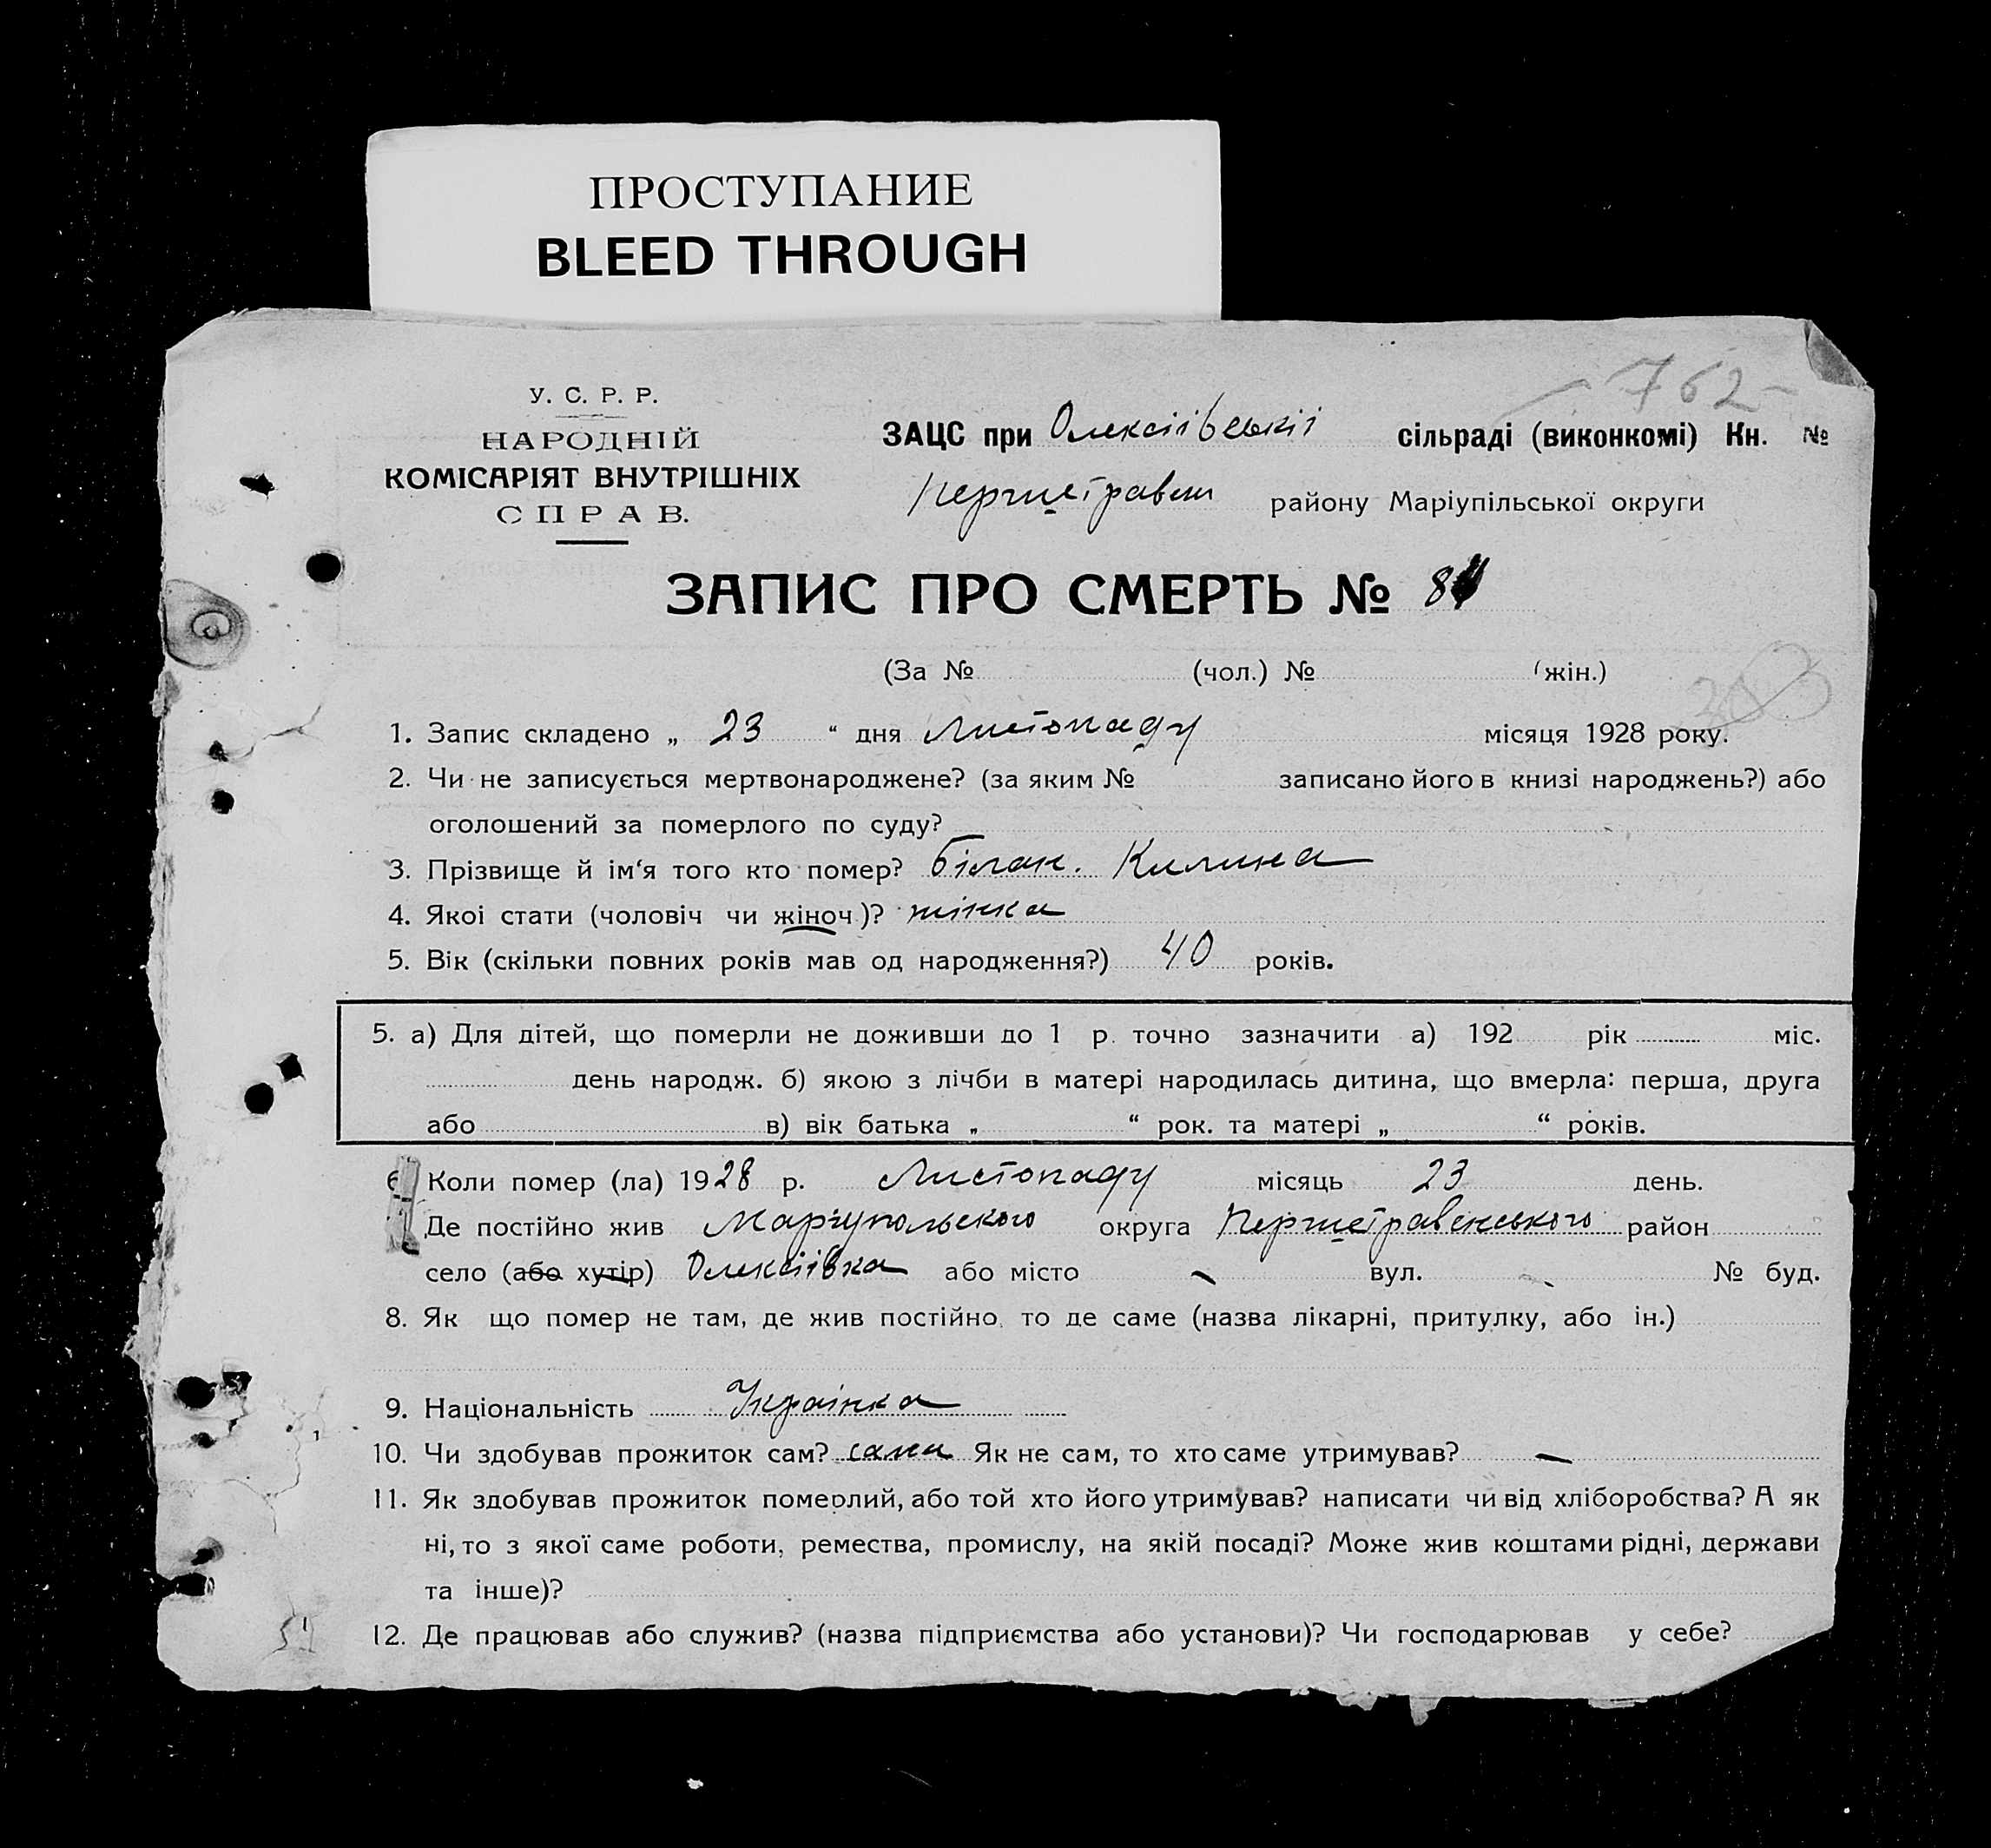 ПРОСТУПАНИЕ
BLEED THROUGH
762
У. С. Р. Р.
НАРОДНІЙ
КОМІСАРІЯТ ВНУТРІШНІХ
СПРАВ.
ЗАЦС при Олексіївській сільраді (виконкомі) Кн. №
Першетравен району Маріупільської округи
ЗАПИС ПРО СМЕРТЬ № 8
(За № (чол.) № (жін.)
1. Запис складено „ 23 “ дня Листопаду місяця 1928 року.
2. Чи не записується мертвонароджене? (за яким № записано його в книзі народжень?) або
оголошений за померлого по суду?
3. Прізвище й ім‘я того кто помер? Білан. Килина
4. Якоі стати (чоловіч чи жіноч)? жінка
5. Вік (скільки повних років мав од народження?) 40 років.
5. а) Для дітей, що померли не доживши до 1 р. точно зазначити а) 192 рік міс.
день народж. б) якою з лічби в матері народилась дитина, що вмерла: перша, друга
або в) вік батька „ “ рок. та матері „ “ років.
6 Коли помер (ла) 1928 р. Листопаду місяць 23 день.
Де постійно жив Маріупольского округа Першетравенського район
село (або хутір) Олексіївка або місто - вул. - № буд.
8. Як що помер не там, де жив постійно, то де саме (назва лікарні, притулку, або ін.)
9. Національність Українка
10. Чи здобував прожиток сам? сама Як не сам, то хто саме утримував? —
11. Як здобував прожиток померлий, або той хто його утримував? написати чи від хліборобства? А як
ні, то з якої саме роботи, ремества, промислу, на якій посаді? Може жив коштами рідні, держави
та інше)?
12. Де працював або служив? (назва підприємства або установи)? Чи господарював у себе?